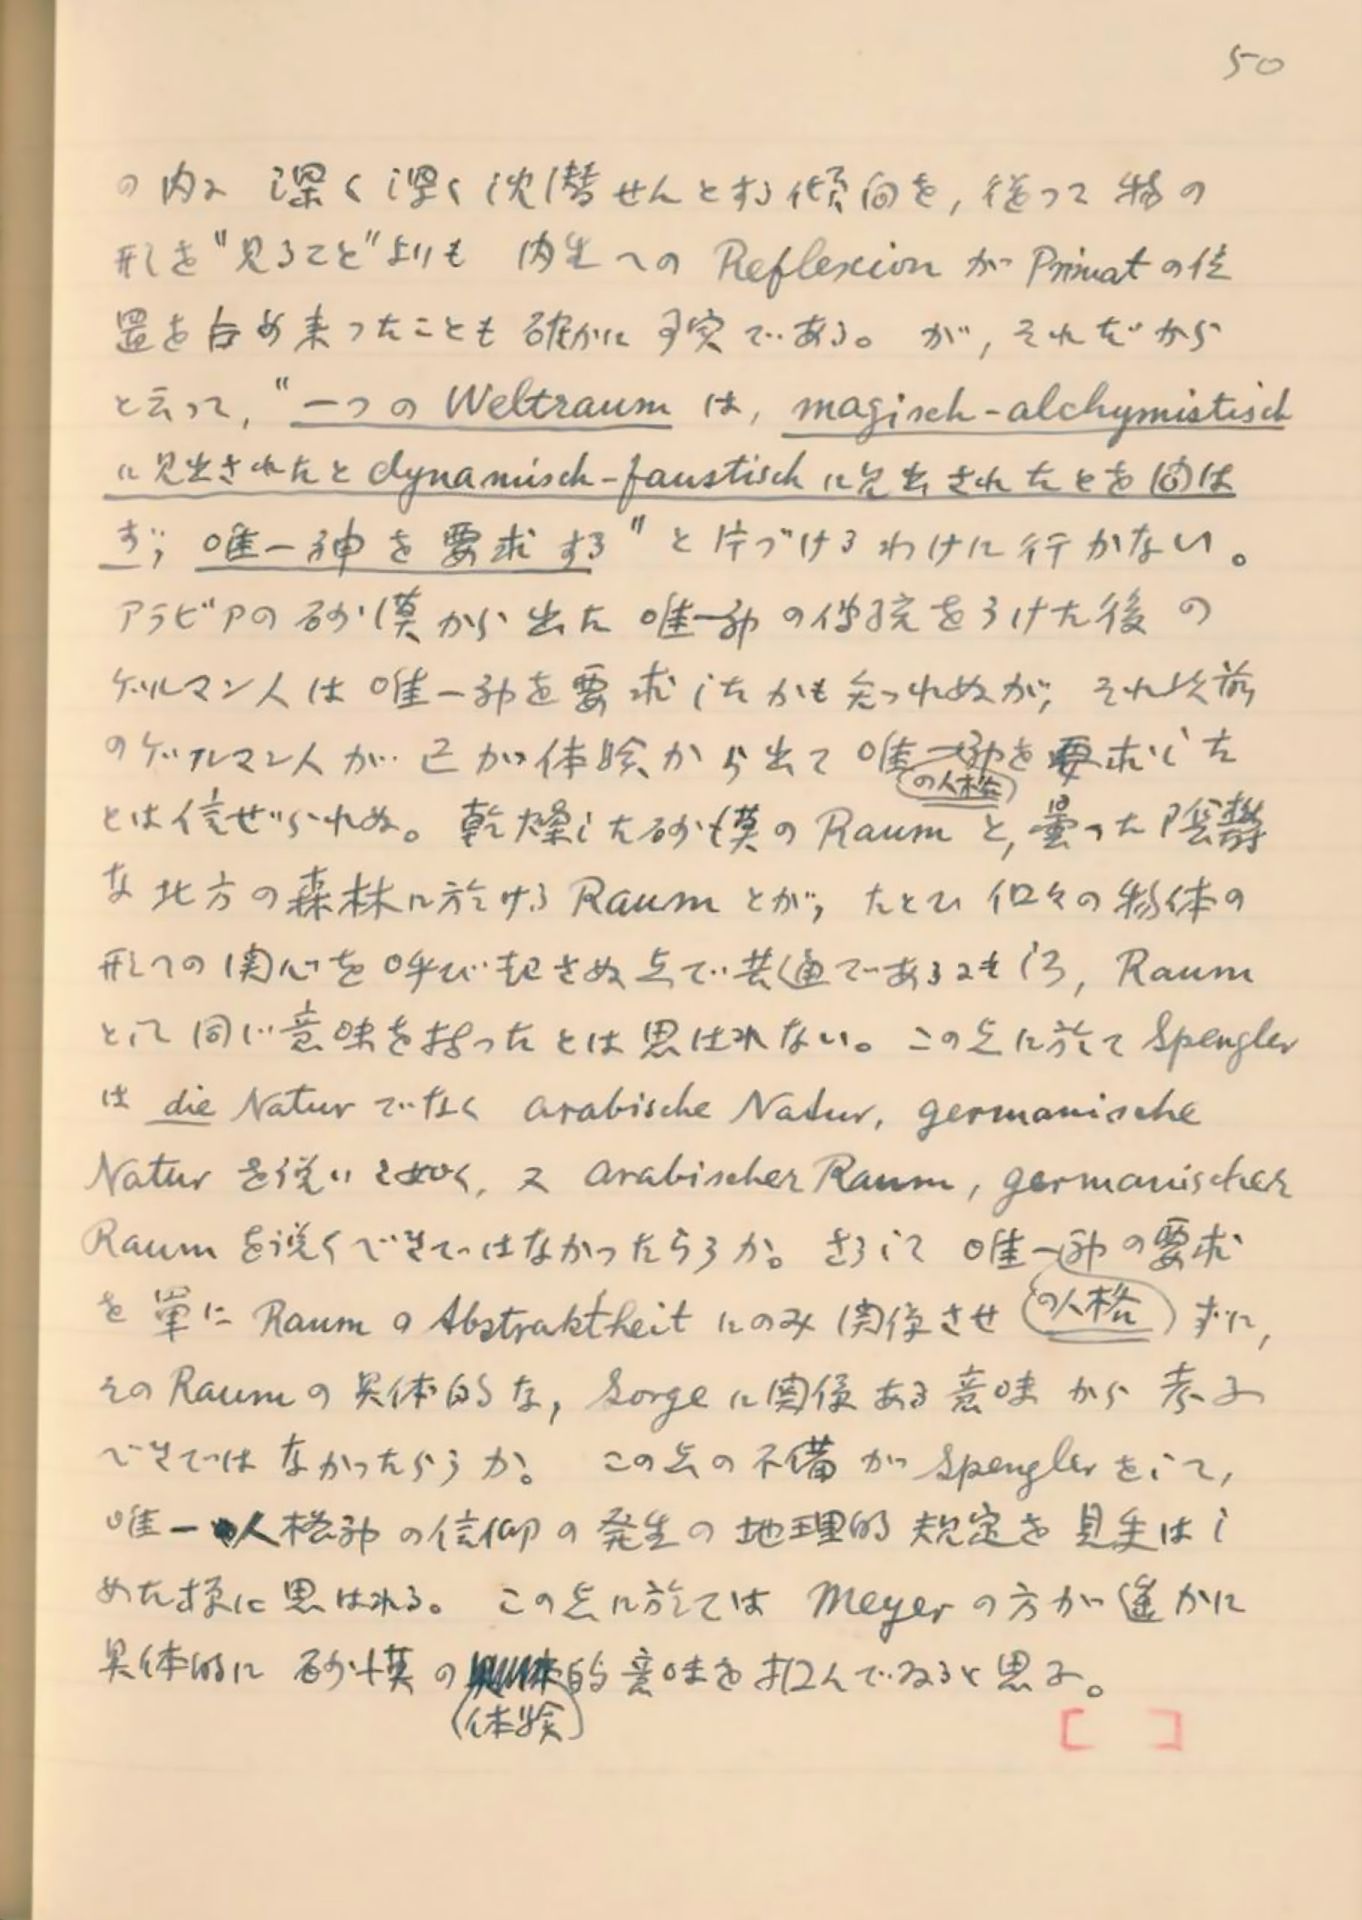 50
の内に 深く深く沈潜せんとする傾向を, 従つて 物の
形を"見ること"よりも 内生への Reflexion が Primat の位
置を占め来つたことも 確かに事実である。が, それだから
と云つて, "一つの Weltraum は, magisch-alchymistisch
に見出されたと dynamisch-faustisch に見出されたとを問は
ず, 唯一神を要求する" と片づけるわけに行かない。
アラビアの砂漠から出た 唯一神の伝統をうけた後の
ゲルマン人は 唯一神を要求したかも知れぬが, それ以前
のゲルマン人が 己が体験から出て 唯一神を要求した
(の人格)
とは信ぜられぬ。乾燥した砂漠の Raum と, 曇つた陰鬱
な北方の森林に於ける Raum とが, たとひ 個々の物体の
形への関心を呼び起さぬ点で共通であるにもしろ, Raum
として同じ意味を持つたとは思はれない。この点に於て Spengler
は die Natur でなく arabische Natur, germanische
Natur を説いた如く, 又 arabischer Raum, germanischer
Raum を説くべきではなかつたらうか。さうして 唯一神の要求
を単に Raum の Abstraktheit にのみ関係させ (の人格) ずに,
その Raum の具体的な, Sorge に関係ある意味から 考ふ
べきではなかつたらうか。 この点の不備が Spengler をして,
唯一人格神の信仰の発生の地理的規定を見失はし
めた様に思はれる。 この点に於ては Meyer の方が遙かに
具体的に 砂漠の的意味を掴んでゐると思ふ。
(体験)
[ ]